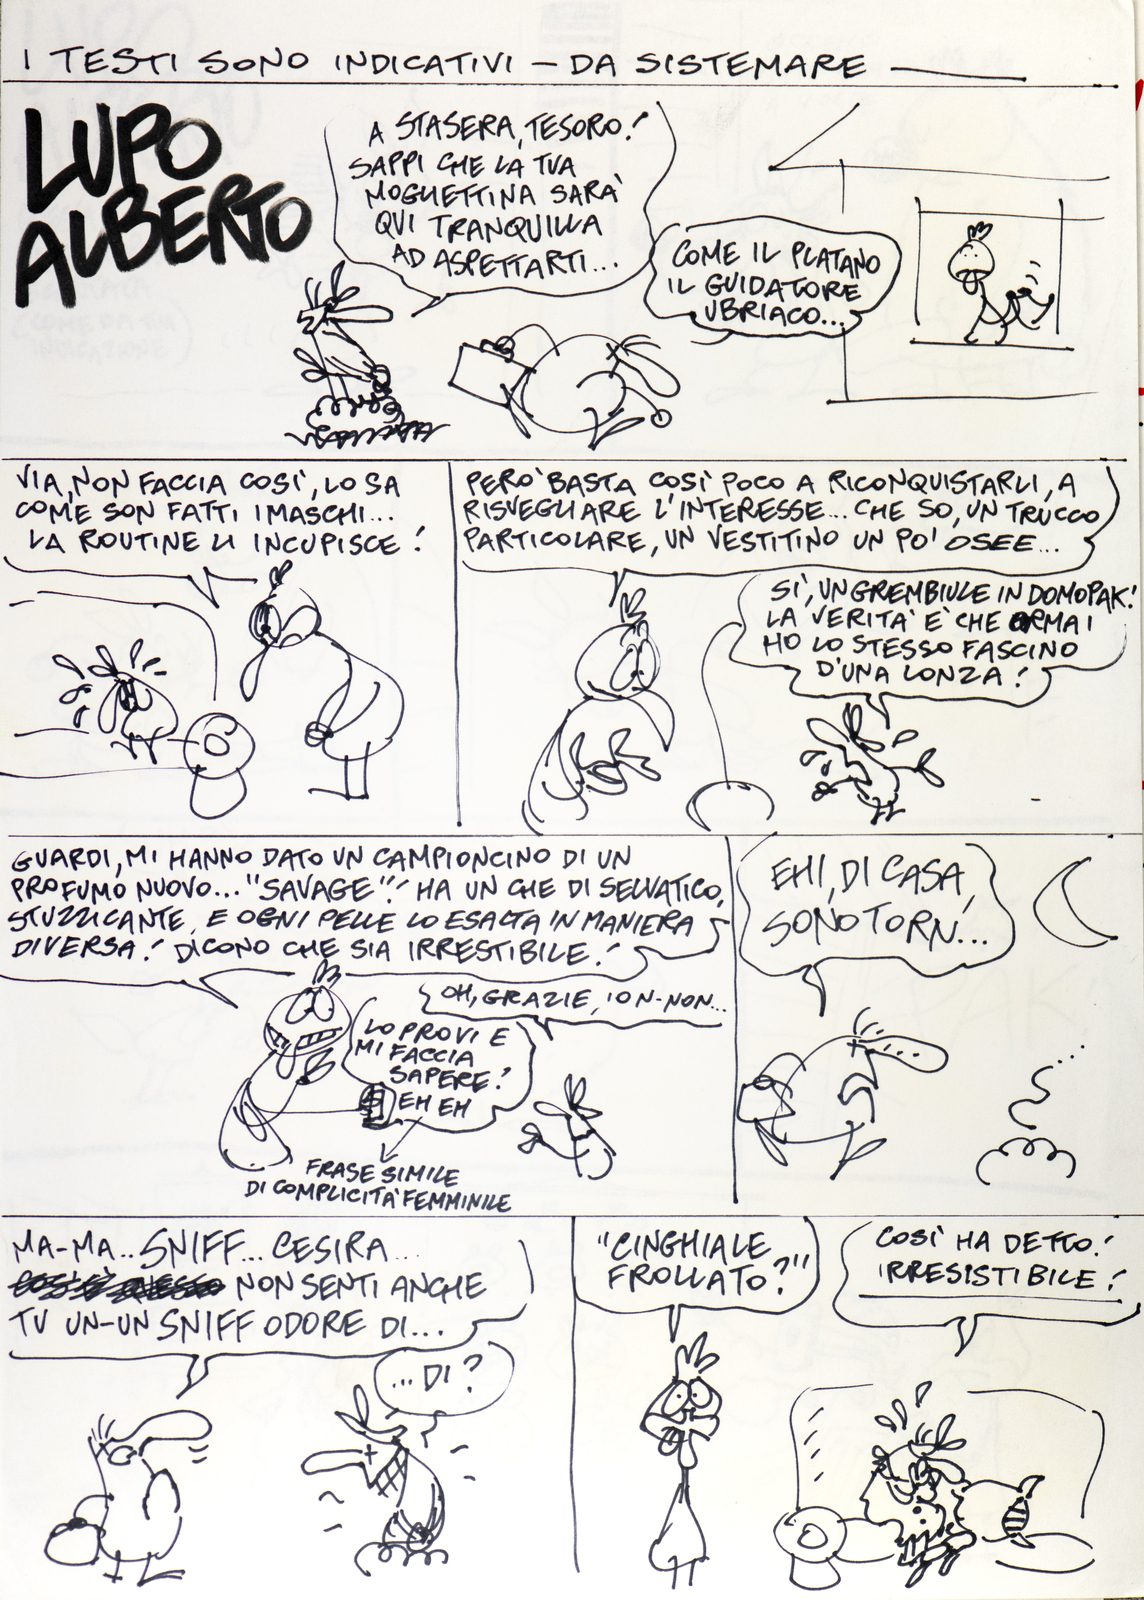 I TESTI SONO INDICATIVI – DA SISTEMARE
LUPO
ALBERTO
A STASERA, TESORO!
SAPPI CHE LA TUA
MOGLIETTINA SARA'
QUI TRANQUILLA
AD ASPETTARTI...
COME IL PLATANO
IL GUIDATORE
UBRIACO...
VIA, NON FACCIA COSÌ, LO SA
COME SON FATTI I MASCHI...
LA ROUTINE LI INCUPISCE!
PERO' BASTA COSÌ POCO A RICONQUISTARLI, A
RISVEGLIARE L'INTERESSE... CHE SO, UN TRUCCO
PARTICOLARE, UN VESTITINO UN PO' OSEE...
SÌ, UN GREMBIULE IN DOMOPAK!
LA VERITA' E' CHE ORMAI
HO LO STESSO FASCINO
D'UNA LONZA!
GUARDI, MI HANNO DATO UN CAMPIONCINO DI UN
PROFUMO NUOVO... "SAVAGE"! HA UN CHE DI SELVATICO,
STUZZICANTE, E OGNI PELLE LO ESALTA IN MANIERA
DIVERSA! DICONO CHE SIA IRRESTIBILE!
OH, GRAZIE, IO N-NON...
LO PROVI E
MI FACCIA
SAPERE!
EH EH
FRASE SIMILE
DI COMPLICITA' FEMMINILE
EHI, DI CASA,
SONO TORN...
MA-MA.. SNIFF... CESIRA...
NON SENTI ANCHE
TU UN-UN SNIFF ODORE DI...
...DI?
"CINGHIALE
FROLLATO?"
COSÌ HA DETTO!
IRRESISTIBILE!